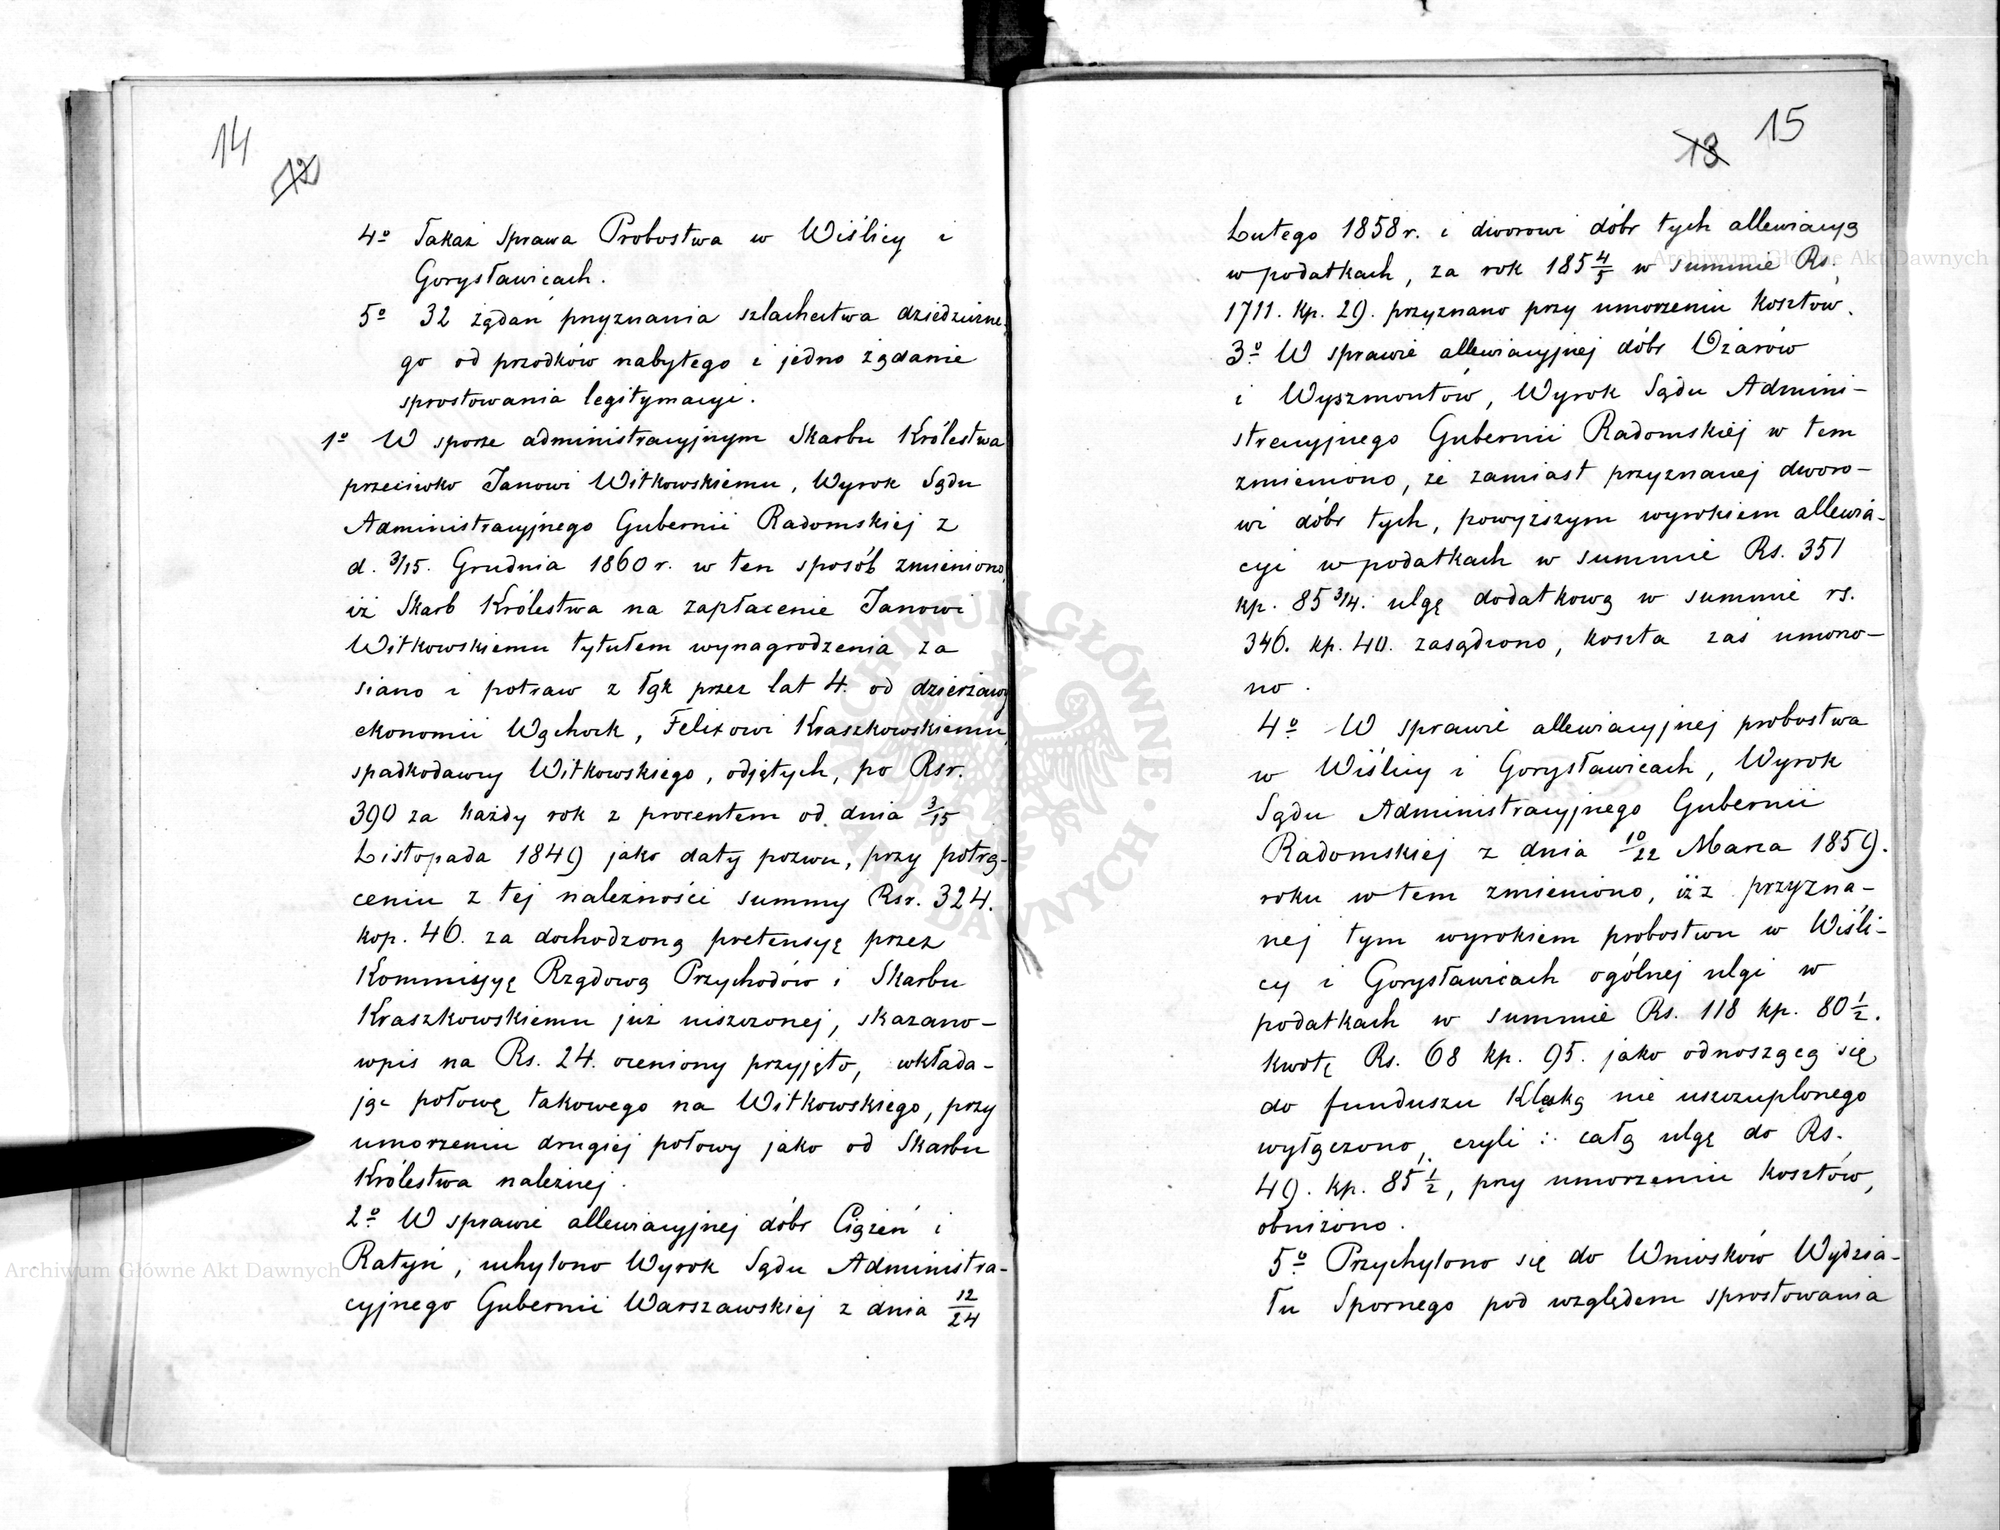 14
12
4º Takaż sprawa Probostwa w Wiślicy i
Gorysławicach.
5º 32 żądań pryznania szlachectwa dziedziczne-
go od przodków nabytego i jedno żądanie
sprostowania legitymacyi.
1º W sporze administracyjnym Skarbu Królestwa
przeciwko Janowi Witkowskiemu, Wyrok Sądu
Administracyjnego Gubernii Radomskiej z
d. 3/15. Grudnia 1860 r. w ten sposób zmieniono,
iż Skarb Królestwa na zapłacenie Janowi
Witkowskiemu tytułem wynagrodzenia za
siano i potraw z łąk przez lat 4. od dzierżawy
ekonomii Wąchock, Felixowi Kraszkowskiemu,
spadkodawcy Witkowskiego, odjętych, po Rsr.
390 za każdy rok z procentem od dnia 3/15
Listopada 1849 jako daty pozwu, przy potrą-
ceniu z tej należności summy Rsr. 324.
kop. 46. za dochodzoną pretensyę przez
Kommisyyę Rządową Przychodów i Skarbu
Kraszkowskiemu już uiszczonej, skazano-
wpis na Rs. 24. oceniony przyjęto, wkłada-
jąc połowę takowego na Witkowskiego, przy
umorzeniu drugiej połowy jako od Skarbu
Królestwa należnej.
2º W sprawie allewiacyjnej dóbr Ciążeń i
Ratyń, uchylono Wyrok Sądu Administra-
cyjnego Gubernii Warszawskiej z dnia 12/24
13 15
Lutego 1858 r. i dworowi dóbr tych allewiacyą
w podatkach, za rok 185 4/5 w summie Rs.
1711. kp. 29. przyznano przy umorzeniu kosztów.
3º W sprawie allewiacyjnej dóbr Ożarów
i Wyszmontów, Wyrok Sądu Admini-
stracyjnego Gubernii Radomskiej w tem
zmieniono, że zamiast przyznanej dworo-
wi dóbr tych, powyższym wyrokiem allewia-
cyi w podatkach w summie Rs. 351
kp. 85 3/4. ulgę dodatkową w summie rs.
346. kp. 40. zasądzono, koszta zaś umorzo-
no.
4º W sprawie allewiacyjnej probostwa
w Wiślicy i Gorysławicach, Wyrok
Sądu Administracyjnego Gubernii
Radomskiej z dnia 10/22 Marca 1859.
roku w tem zmieniono, iż z przyzna-
nej tym wyrokiem probostwu w Wiśli-
cy i Gorysławicach ogólnej ulgi w
podatkach w summie Rs. 118 kp. 80 1/2.
kwotę Rs. 68 kp. 95. jako odnoszącą się
do funduszu Klęką nie uszczuplonego
wyłączono, czyli : całą ulgę do Rs.
49. kp. 85 1/2, przy umorzeniu kosztów,
obniżono.
5º Przychylono się do Wniosków Wydzia-
łu Spornego pod względem sprostowania
Archiwum Główne Akt Dawnych
Archiwum Główne Akt Dawnych
ARCHIWUM GŁÓWNE AKT DAWNYCH